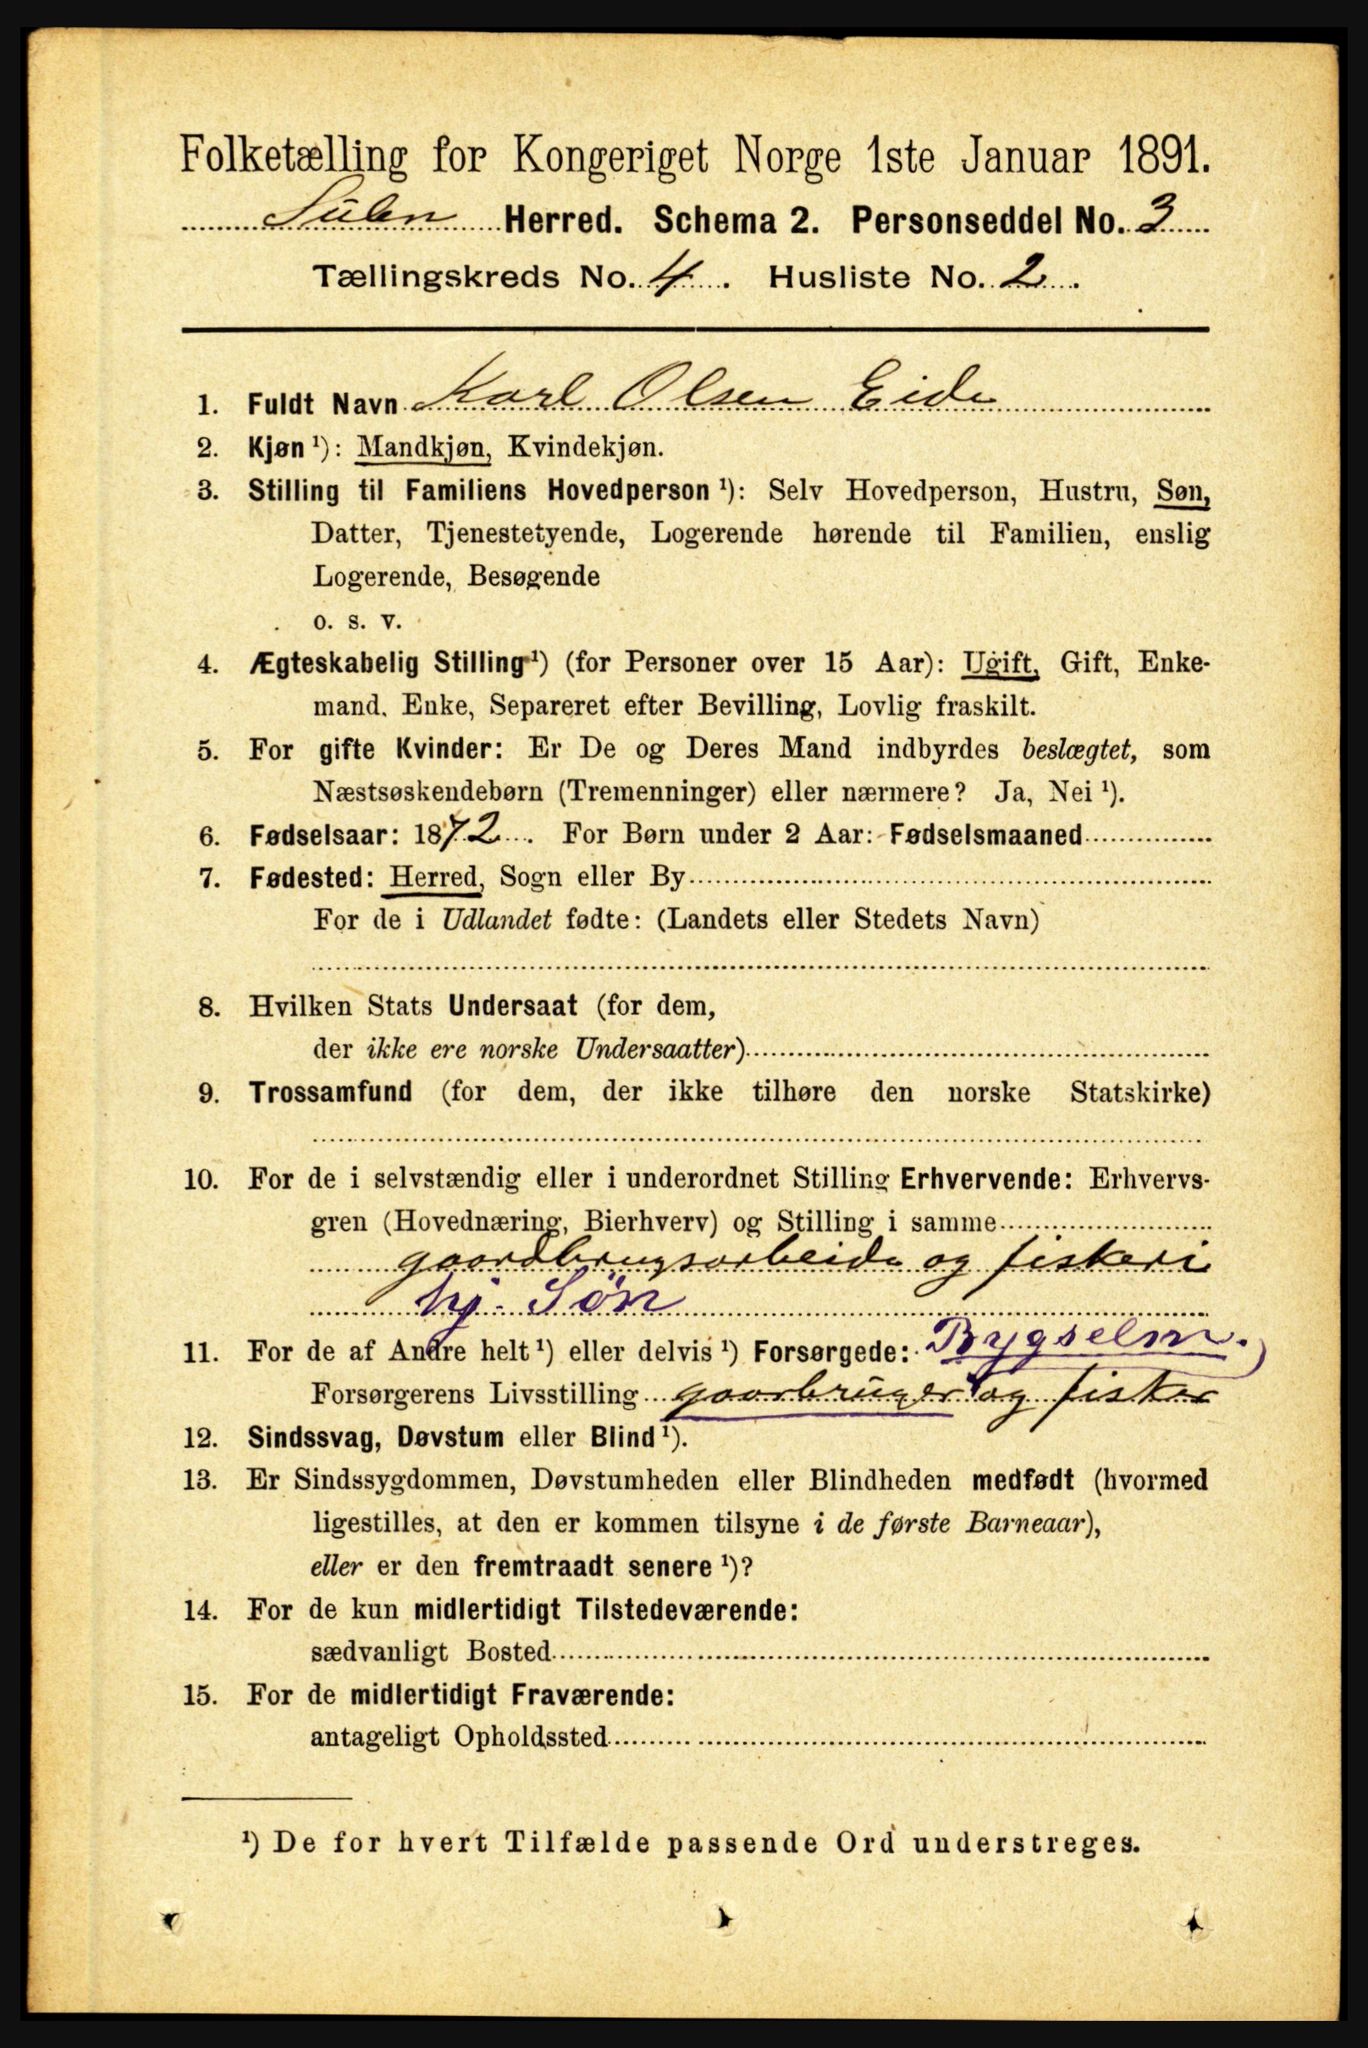 Folketælling for Kongeriget Norge 1ste Januar 1891.
Sulen Herred. Schema 2. Personseddel No. 3
Tællingskreds No. 4. Husliste No. 2.
1. Fuldt Navn Karl Olsen Eide
2. Kjøn ¹): Mandkjøn, Kvindekjøn.
3. Stilling til Familiens Hovedperson ¹): Selv Hovedperson, Hustru, Søn,
Datter, Tjenestetyende, Logerende hørende til Familien, enslig
Logerende, Besøgende
o. s. v.
4. Ægteskabelig Stilling ¹) (for Personer over 15 Aar): Ugift, Gift, Enke-
mand, Enke, Separeret efter Bevilling, Lovlig fraskilt.
5. For gifte Kvinder: Er De og Deres Mand indbyrdes beslægtet, som
Næstsøskendebørn (Tremenninger) eller nærmere? Ja, Nei ¹).
6. Fødselsaar: 1872. For Børn under 2 Aar: Fødselsmaaned
7. Fødested: Herred, Sogn eller By
For de i Udlandet fødte: (Landets eller Stedets Navn)
8. Hvilken Stats Undersaat (for dem,
der ikke ere norske Undersaatter)
9. Trossamfund (for dem, der ikke tilhøre den norske Statskirke)
10. For de i selvstændig eller i underordnet Stilling Erhvervende: Erhvervs-
gren (Hovednæring, Bierhverv) og Stilling i samme
gaardbrugsarbeide og fiskeri
hj. Søn
11. For de af Andre helt ¹) eller delvis ¹) Forsørgede: Bygselm.
Forsørgerens Livsstilling gaarbruger og fisker
12. Sindssvag, Døvstum eller Blind ¹).
13. Er Sindssygdommen, Døvstumheden eller Blindheden medfødt (hvormed
ligestilles, at den er kommen tilsyne i de første Barneaar),
eller er den fremtraadt senere ¹)?
14. For de kun midlertidigt Tilstedeværende:
sædvanligt Bosted
15. For de midlertidigt Fraværende:
antageligt Opholdssted
¹) De for hvert Tilfælde passende Ord understreges.